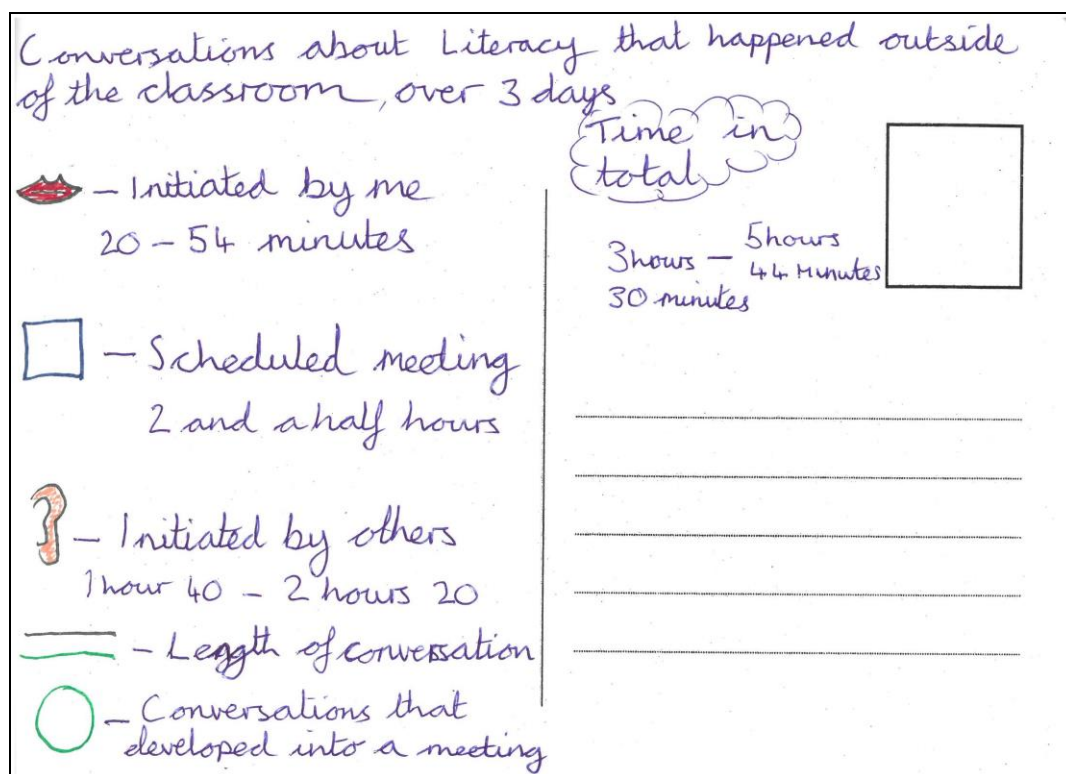 Conversations about Literacy that happened outside
of the classroom, over 3 days
– Initiated by me
20 – 54 minutes
– Scheduled meeting
2 and a half hours
– Initiated by others
1 hour 40 – 2 hours 20
– Length of conversation
– Conversations that
developed into a meeting
Time in
total
3 hours – 5 hours
44 Minutes
30 minutes